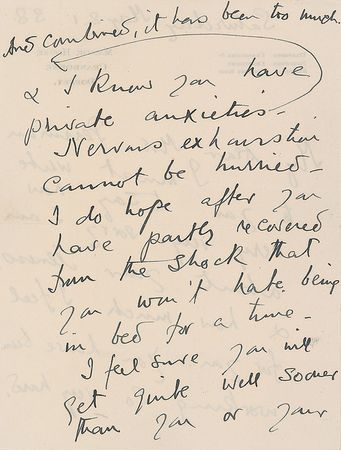 And combined, it has been too much.
& I know you have
private anxieties -
Nervous exhaustion
cannot be hurried -
I do hope after you
have partly recovered
from the shock that
you won't hate being
in bed for a time -
I feel sure you will
get quite well sooner
than you or your